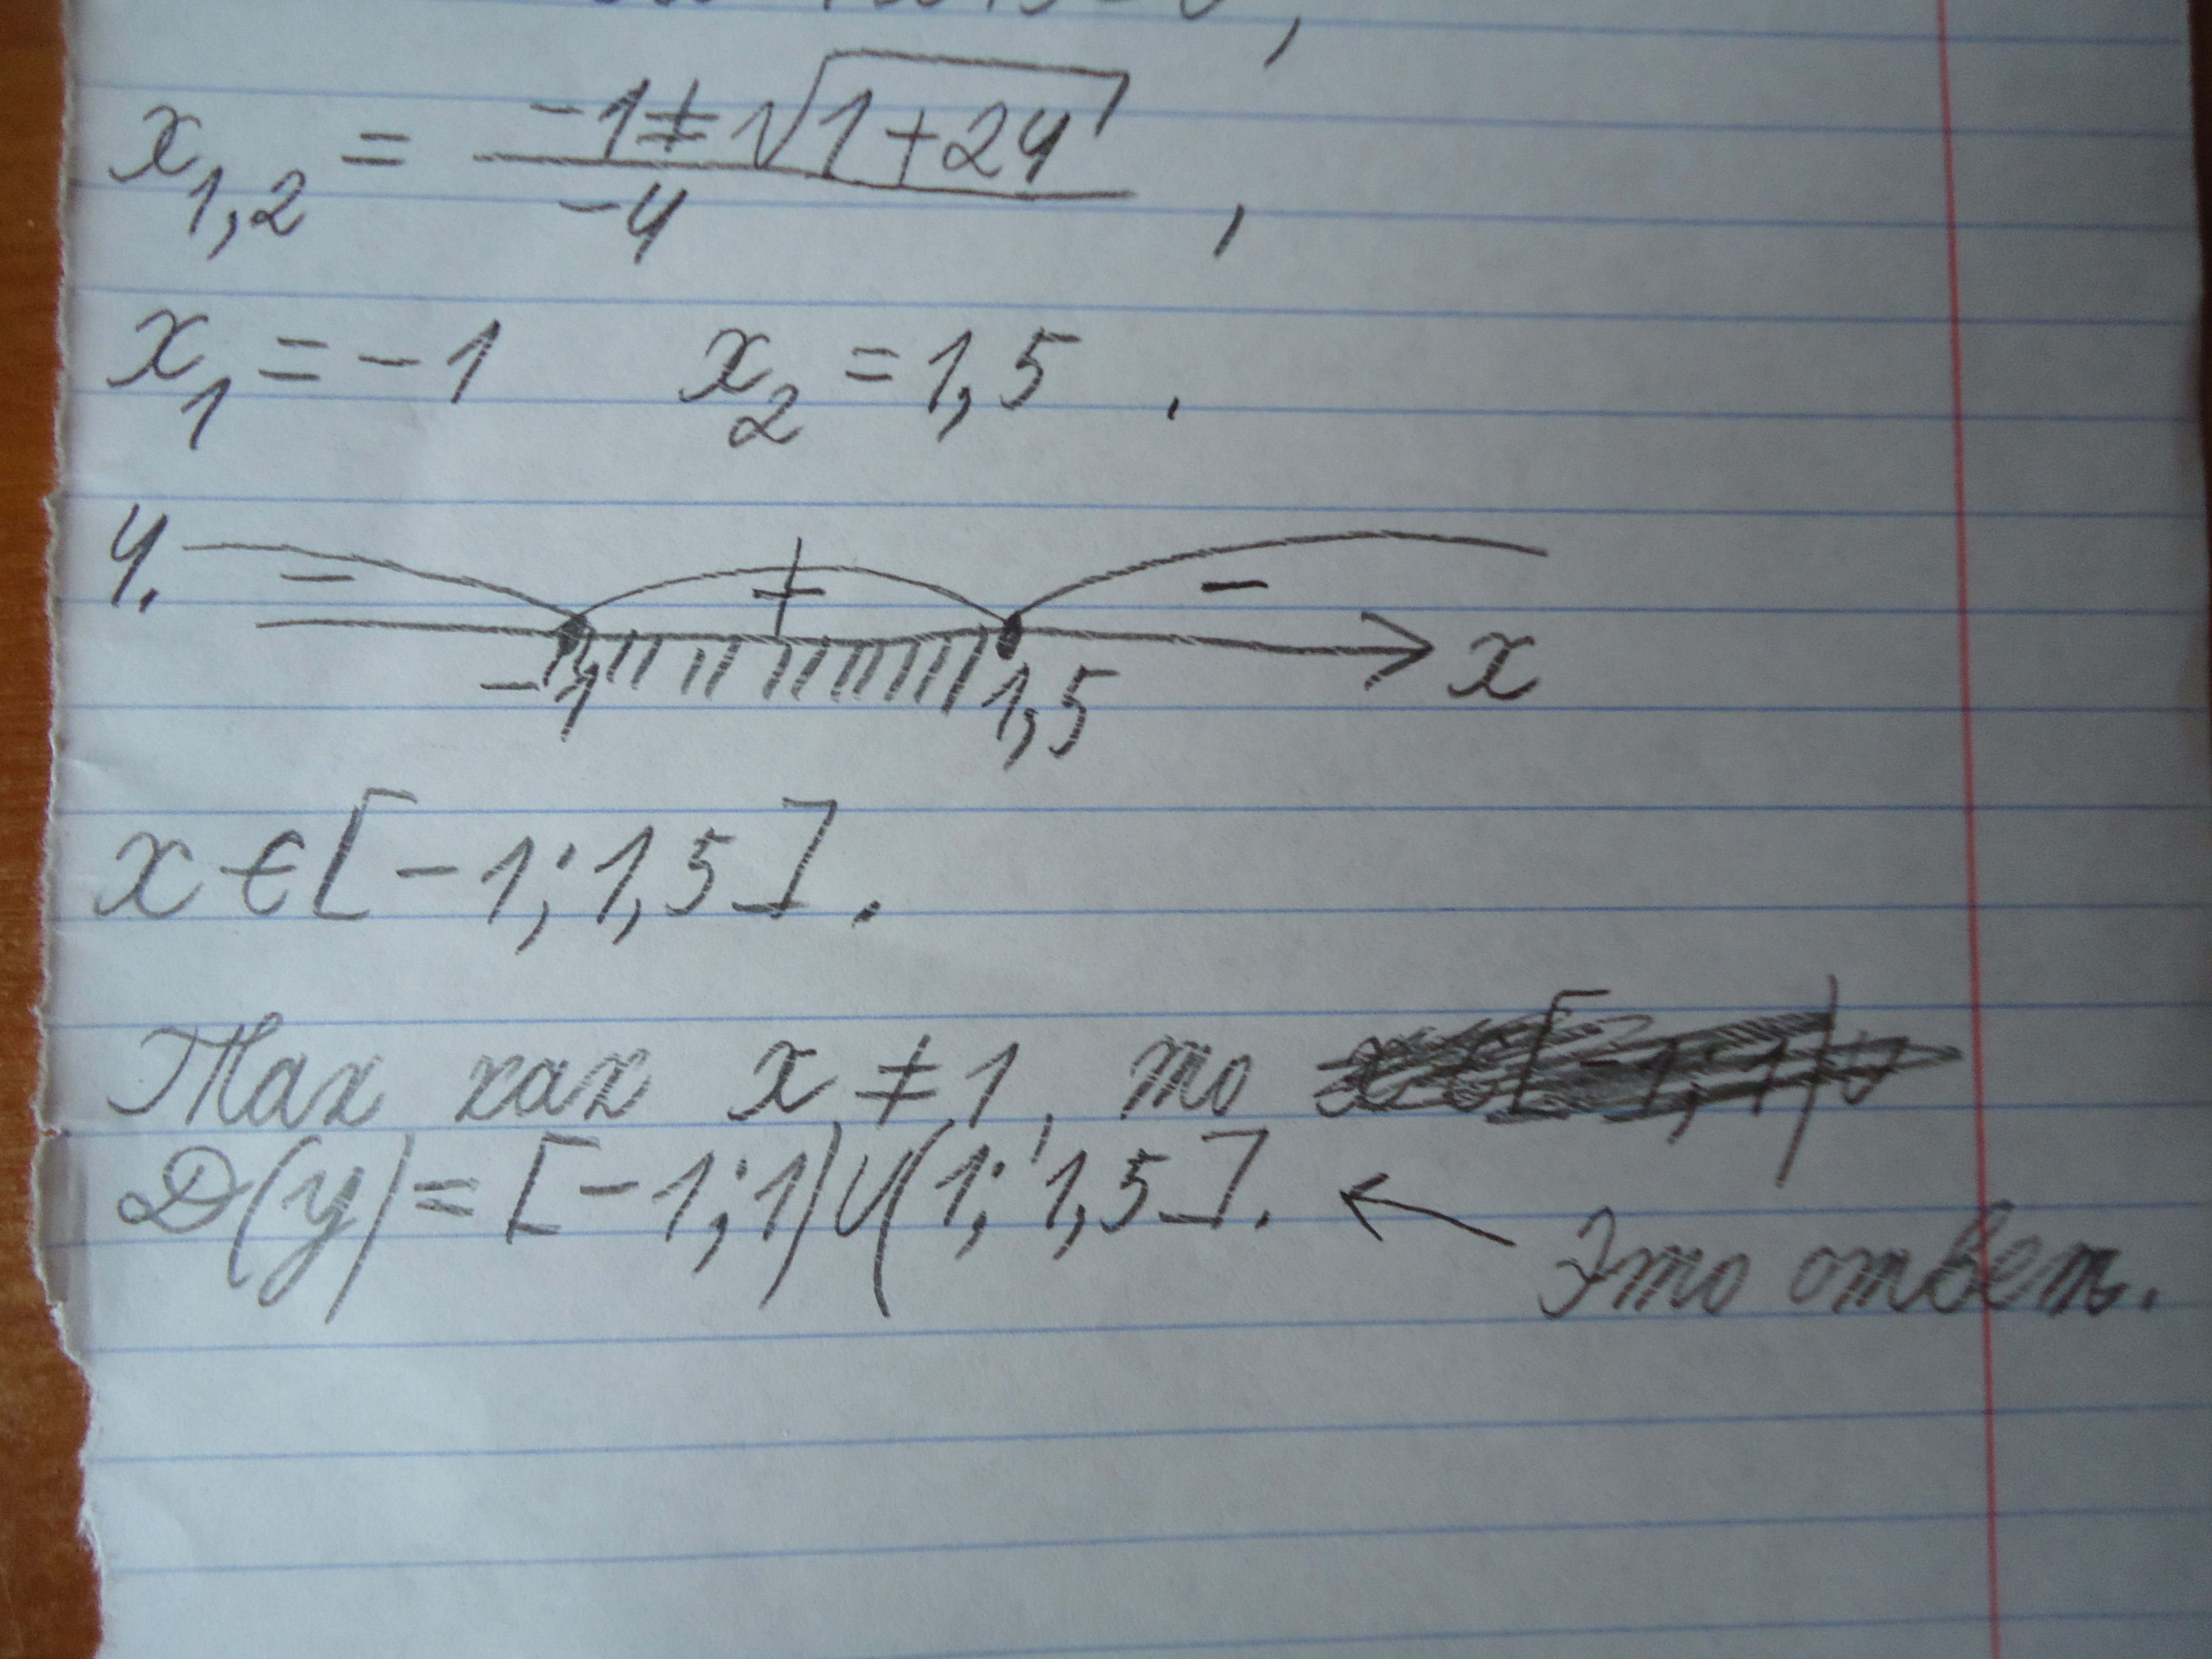 x₁,₂ = (-1 ± √(1+24)) / -4 ,
x₁ = -1 x₂ = 1,5 .
4. - + - x
-1 1,5
x ∈ [-1; 1,5].
Так как x ≠ 1, то
D(y) = [-1; 1) ∪ (1; 1,5]. ← Это ответ.